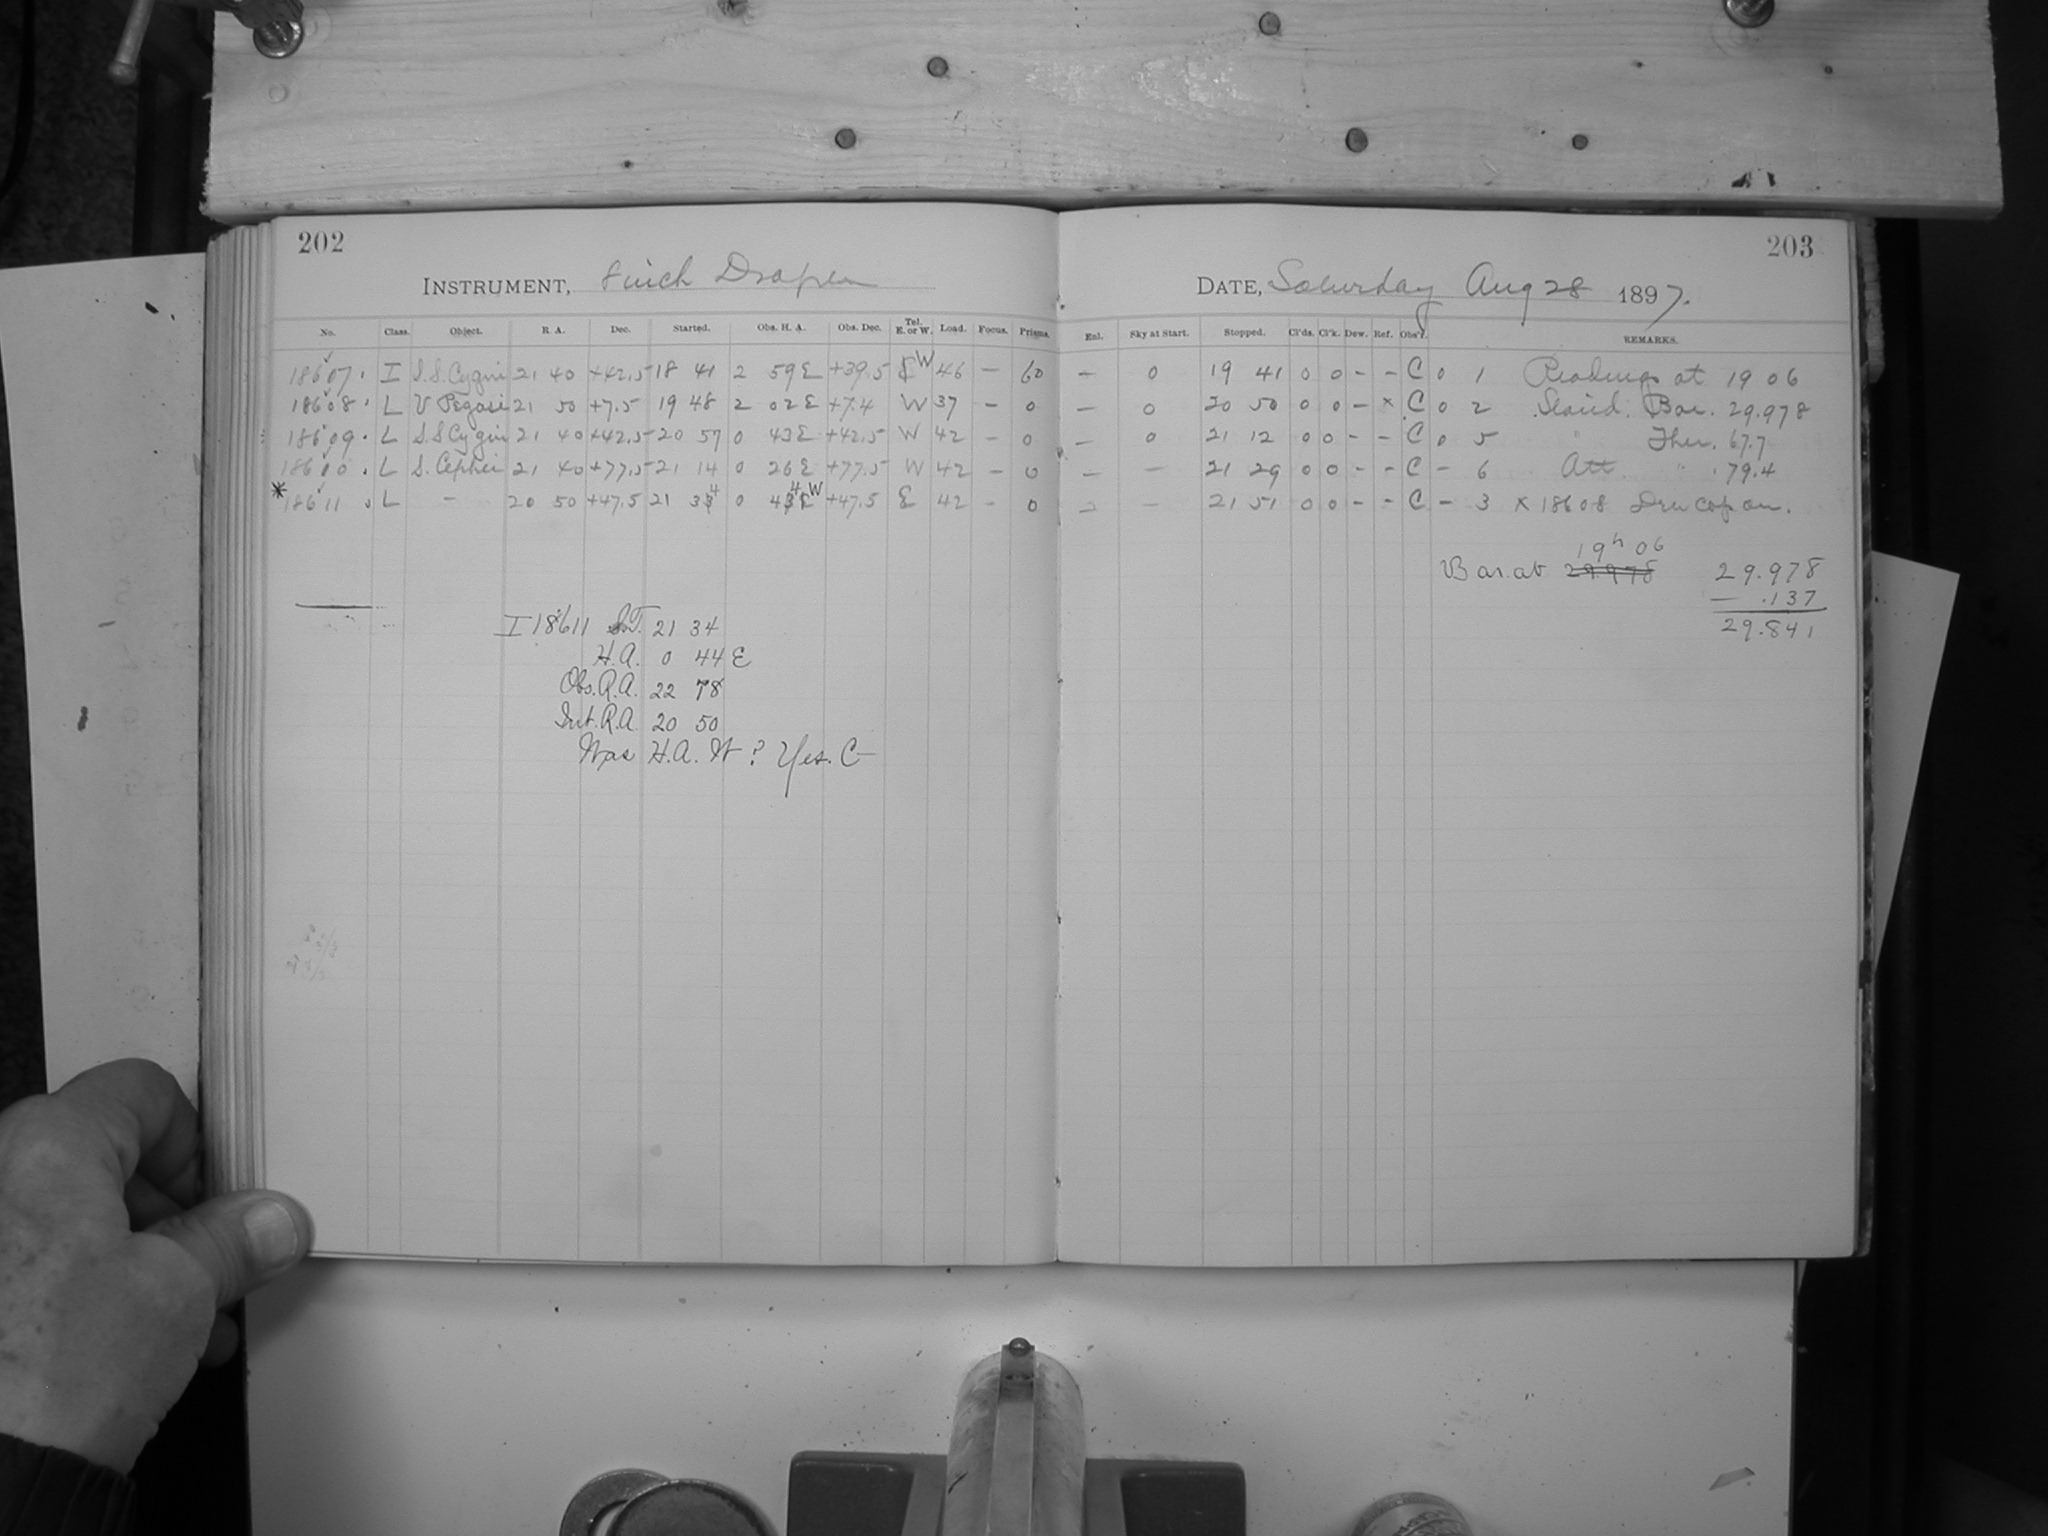 202
INSTRUMENT, 8 inch Draper
No. Class. Object. R. A. Dec. Started. Obs. H. A. Obs. Dec. Tel. E. or W. Load. Focus. Prisms.
18607. I S.S. Cygni 21 40 +42.5 18 41 2 59 E +39.5 E W 46 – 60
18608. L V Pegasi 21 50 +7.5 19 48 2 02 E +7.4 W 37 – 0
18609. L S.S Cygni 21 40 +42.5 20 57 0 43 E +42.5 W 42 – 0
18610. L S. Cephei 21 40 +77.5 21 14 0 26 E +77.5 W 42 – 0
* 18611 L – 20 50 +47.5 21 34 0 44 W +47.5 E 42 – 0
I 18611 S.T. 21 34
H.A. 0 44 E
Obs. R.A. 22 18
Int. R.A. 20 50
Was H.A. W? Yes. C
203
DATE, Saturday Aug 28 1897.
Enl. Sky at Start. Stopped. Cl'ds. Cl'k. Dew. Ref. Obs'r. REMARKS.
– 0 19 41 0 0 – – C 0 1 Readings at 19 06
– 0 20 50 0 0 – x C 0 2 Stand. Bar. 29.978
– 0 21 12 0 0 – – C 0 5 " Ther. 67.7
– – 21 29 0 0 – – C – 6 Att. " 79.4
– – 21 51 0 0 – – C – 3 x 18608 Dew cap on.
19h 06
Bar. at 29.978 29.978
– .137
29.841